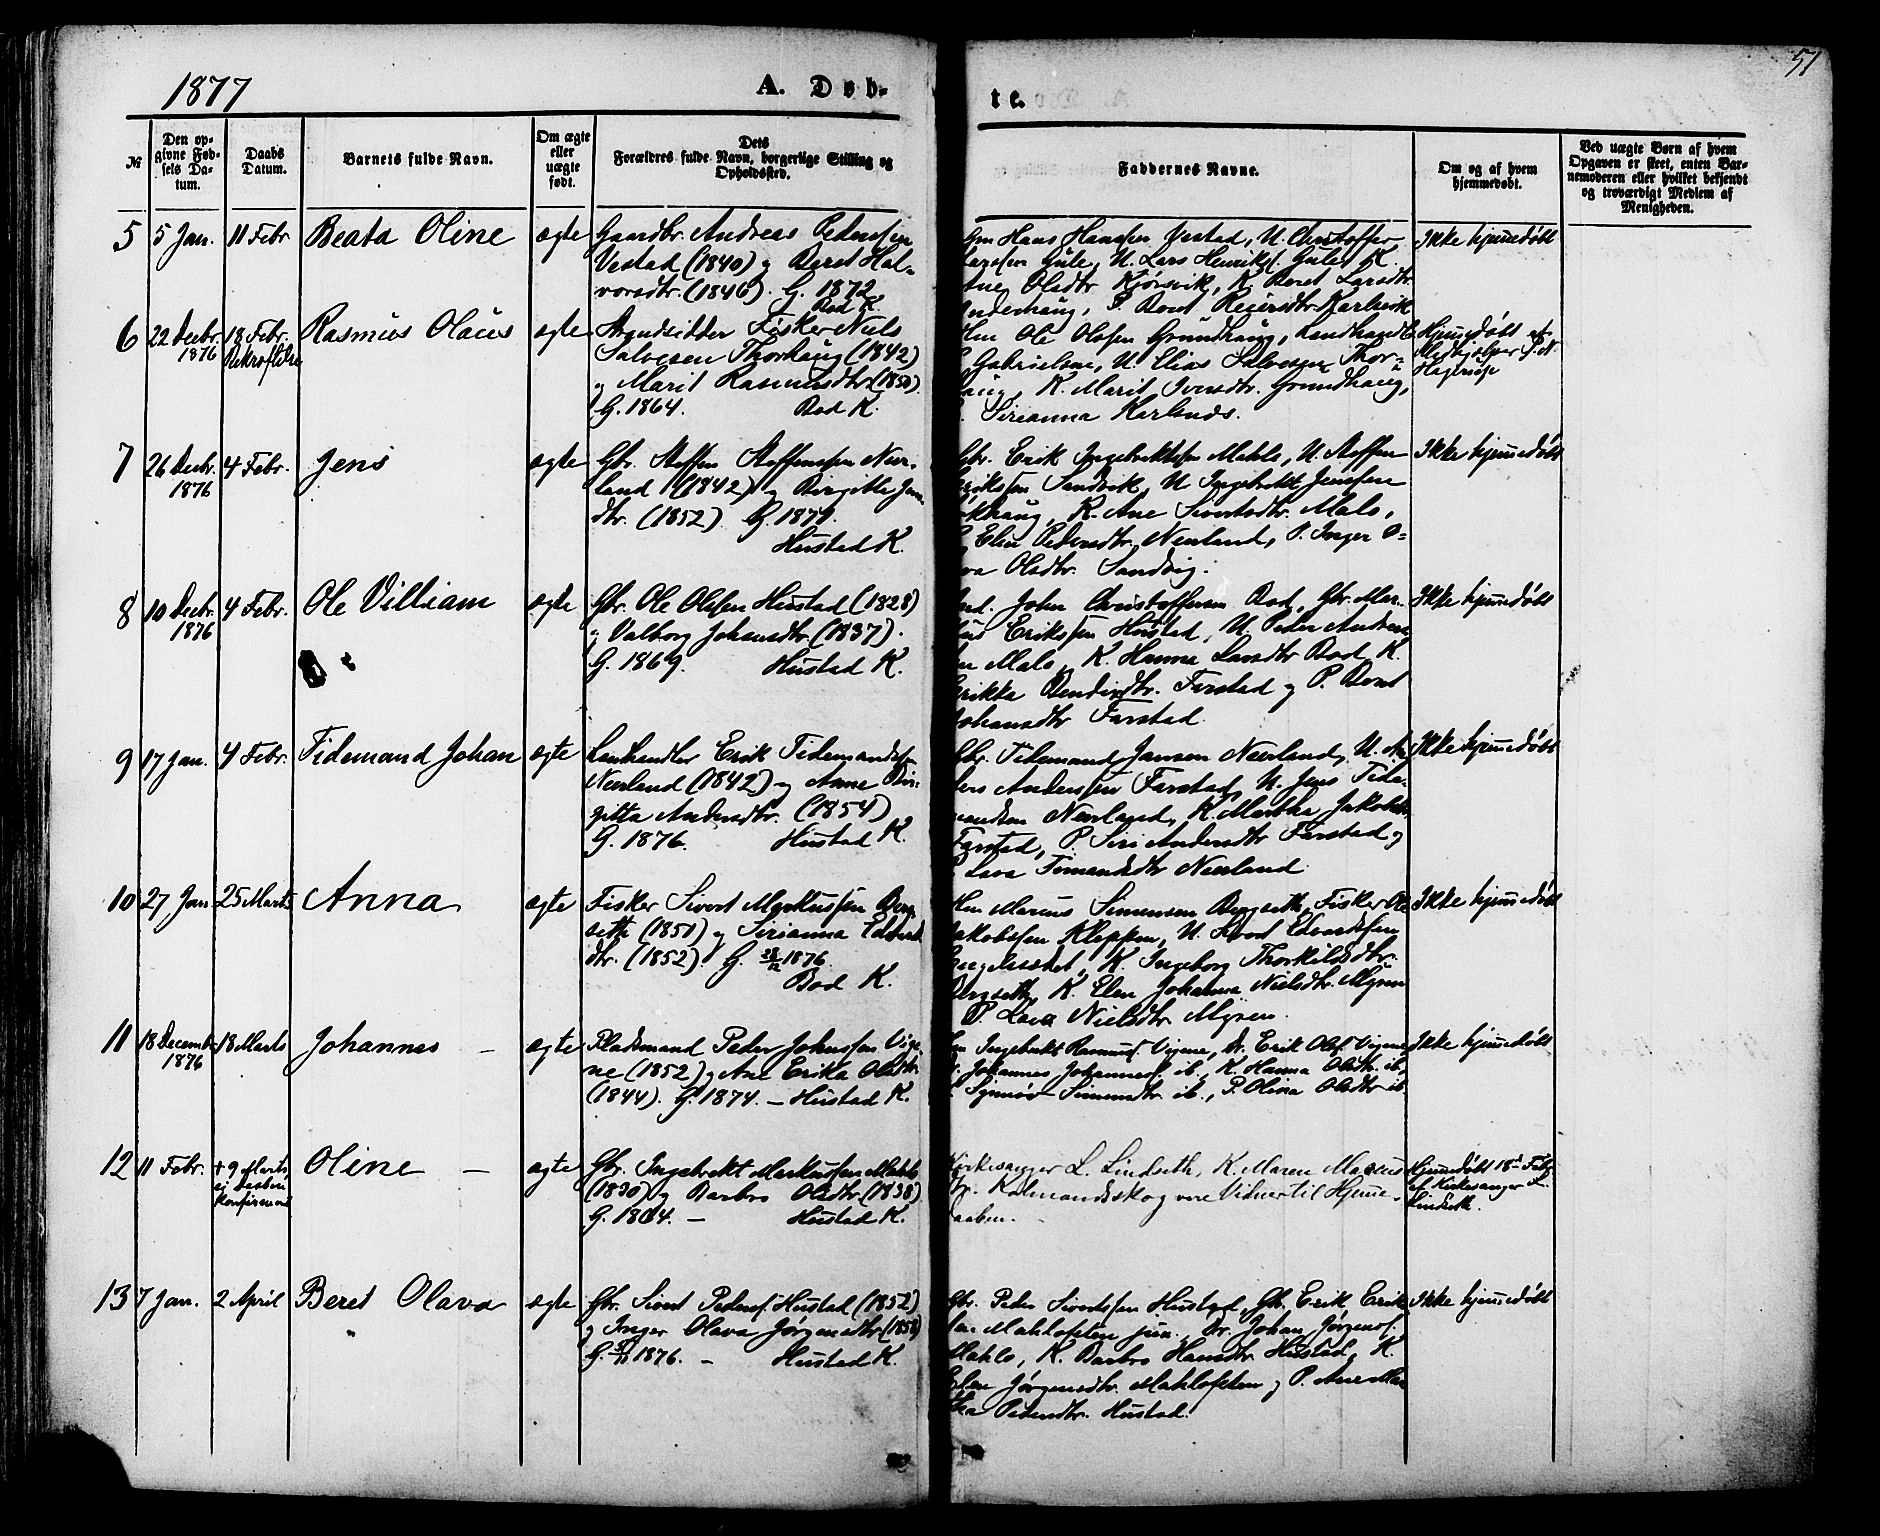 1877
A. Døb-
te.
51
№
Den op-
givne Fød-
sels Da-
tum.
Daabs
Datum.
Barnets fulde Navn.
Om ægte
eller
uægte
født.
Dets
Forældres fulde Navn, borgerlige Stilling og
Opholdssted.
Faddernes Navne.
Om og af hvem
hjemmedøbt.
Ved uægte Børn af hvem
Opgaven er skeet, enten Bar-
nemoderen eller hvilket bekjendt
og troværdigt Medlem af
Menigheden.
5
5 Jan.
11 Febr
Beata Oline
ægte
Gaardbr. Andreas Pedersen
Vestad (1840) og Beret Hal-
vorsdtr. (1846). G. 1872
Bod K.
Hans Hansen Vestad, U. Christoffer
Gule, U. Lars Henriks. Gule, K.
Olsdtr Kjørsvik, K. Beret Larsdtr.
P. Beret Karlsvik
Ikke hjemmedøbt
6
22 Decbr.
1876
18 Febr.
Rasmus Olaus
ægte
Strandsidder Fisker Niels
Salvesen Thorhaug (1842)
og Marit Rasmusdtr. (1850)
G. 1864. Bod K.
Ole Olsen Grundhaug, Landhandl.
Gabrielsen, U. Elias Salvesen Thor-
haug, K. Marit Iversdtr. Grundhaug,
Sirianna Karlsnds.
Hjemmedøbt af
Medhjælper P. N.
Hagerup
7
26 Decbr.
1876
4 Febr.
Jens
ægte
Gbr. Steffen Steffensen Neer-
land (1842) og Birgitte Jens-
dtr. (1852). G. 1874.
Hustad K.
Gbr. Erik Ingebrektsen Mahle, U. Steffen
Eriksen Sandvik, U. Ingebrekt Jensen
haug, K. Ane Sivertsdtr. Malo,
Elen Pedersdtr. Neerland, P. Inger O-
ava Olsdtr. Sandvig.
Ikke hjemmedøbt
8
10 Decbr.
1876
4 Febr.
Ole Villiam
ægte
Gbr. Ole Olsen Hustad (1828)
og Valborg Johansdtr. (1837).
G. 1869. Hustad K.
John Christoffersen Bod, Gbr. Mar-
kus Eriksen Hustad, U. Peder Anders-
en Malo, K. Hanna Larsdtr Bod, K.
Erikka Bendixdtr. Farstad og P. Beret
Johansdtr Farstad.
Ikke hjemmedøbt
9
17 Jan.
4 Febr.
Tidemand Johan
ægte
Lanhandler Erik Tidemandsen
Neerland (1842) og Anne Bir-
gitta Andersdtr. (1854)
G. 1876. Hustad K.
Gbr. Tidemand Jansen Neerland, U. An-
ders Andersen Farstad, U. Jens Tide-
mandsen Neerland, K. Martha Jakobsdtr.
Farstad, P. Siri Andersdtr Farstad og
Lava Timandsdtr Neerland.
Ikke hjemmedøbt
10
27 Jan
25 Marts
Anna
ægte
Fisker Sivert Markussen Berg-
seth (1851) og Sirianna Edvards-
dtr. (1852). G. 28/12 1876.
Bod K.
Marcus Simensen Bergseth, Fisker Ole
Jakobsen Kleppen, U. Sivert Edvardsen
Engelsædet, K. Ingeborg Thorkildsdtr.
Bergseth, K. Elen Johanna Nielsdtr. Myren
P. Lava Nielsdtr Myren.
Ikke hjemmedøbt
11
18 Decembr.
1876
18 Marts
Johannes –
ægte
Pladsmand Peder Johnsen Vige-
ne (1852) og Ane Erika Olsdtr.
(1844). G. 1874. – Hustad K.
Ingebrekt Rasmus. Vigene, Dr. Erik Ols. Vigene
Johannes Johannes. ib., K. Hanna Olsdtr. ib.,
Synnøv Simensdtr. ib., P. Olina Olsdtr ib.
Ikke hjemmedøbt
12
11 Febr.
+ 9 Marts
ej Daaben
konfirmeret
Oline –
ægte
Gbr. Ingebrekt Markussen Mahle
(1830) og Barbro Olsdtr. (1838)
G. 1864. – Hustad K.
Kirkesanger L. Lindseth, K. Maren Marcus-
dtr. Kalmandsskog vare Vidner til Hjemme-
daaben.
Hjemmedøbt 18de Febr.
af Kirkesanger L.
Lindseth.
13
7 Jan.
2 April
Beret Olava
ægte
Gbr. Sivert Peders. Hustad (1852)
og Inger Olava Jørgensdtr. (1858)
G. 1876. – Hustad K.
Gbr. Peder Sivertsen Hustad, Gbr. Erik Erik-
sen Mahlesten jun., Dr. Johan Jørgens.
Mahle, K. Barbro Hansdtr. Hustad, K.
Elen Jørgensdtr. Mahlesten og P. Ane Mar-
tha Pedersdtr. Hustad.
Ikke hjemmedøbt